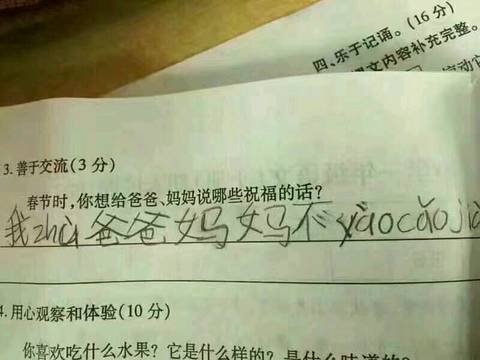 四、乐于记诵。(16分)
文内容补充完整。
3.善于交流(3分)
春节时,你想给爸爸、妈妈说哪些祝福的话?
我zhù爸爸妈妈不yào cǎo jià
4.用心观察和体验(10分)
你喜欢吃什么水果?它是什么样的?是什么味道的?